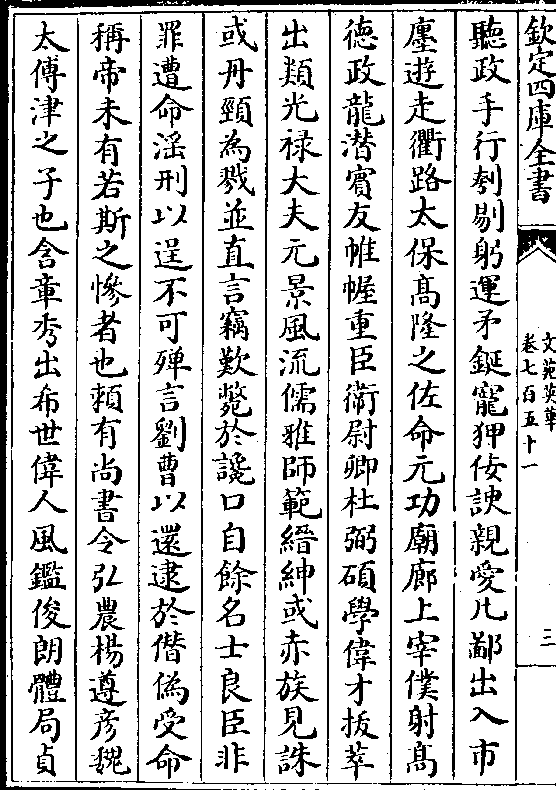 欽定四庫全書
文苑英華
卷七百五十一
三
聽政手行刳剔躬運矛鋋寵狎佞諛親愛凡鄙出入市
廛遊走衢路太保髙隆之佐命元功廟廊上宰僕射髙
徳政龍潜賓友帷幄重臣衛尉卿杜弼碩學偉才拔萃
出類光禄大夫元景風流儒雅師範縉紳或赤族見誅
或丹頸為戮並直言竊歎斃於讒口自餘名士良臣非
罪遭命淫刑以逞不可殫言劉曹以還逮於僣偽受命
稱帝未有若斯之慘者也頼有尚書令弘農楊遵彦魏
太傅津之子也含章秀出希世偉人風鑑俊朗體局貞